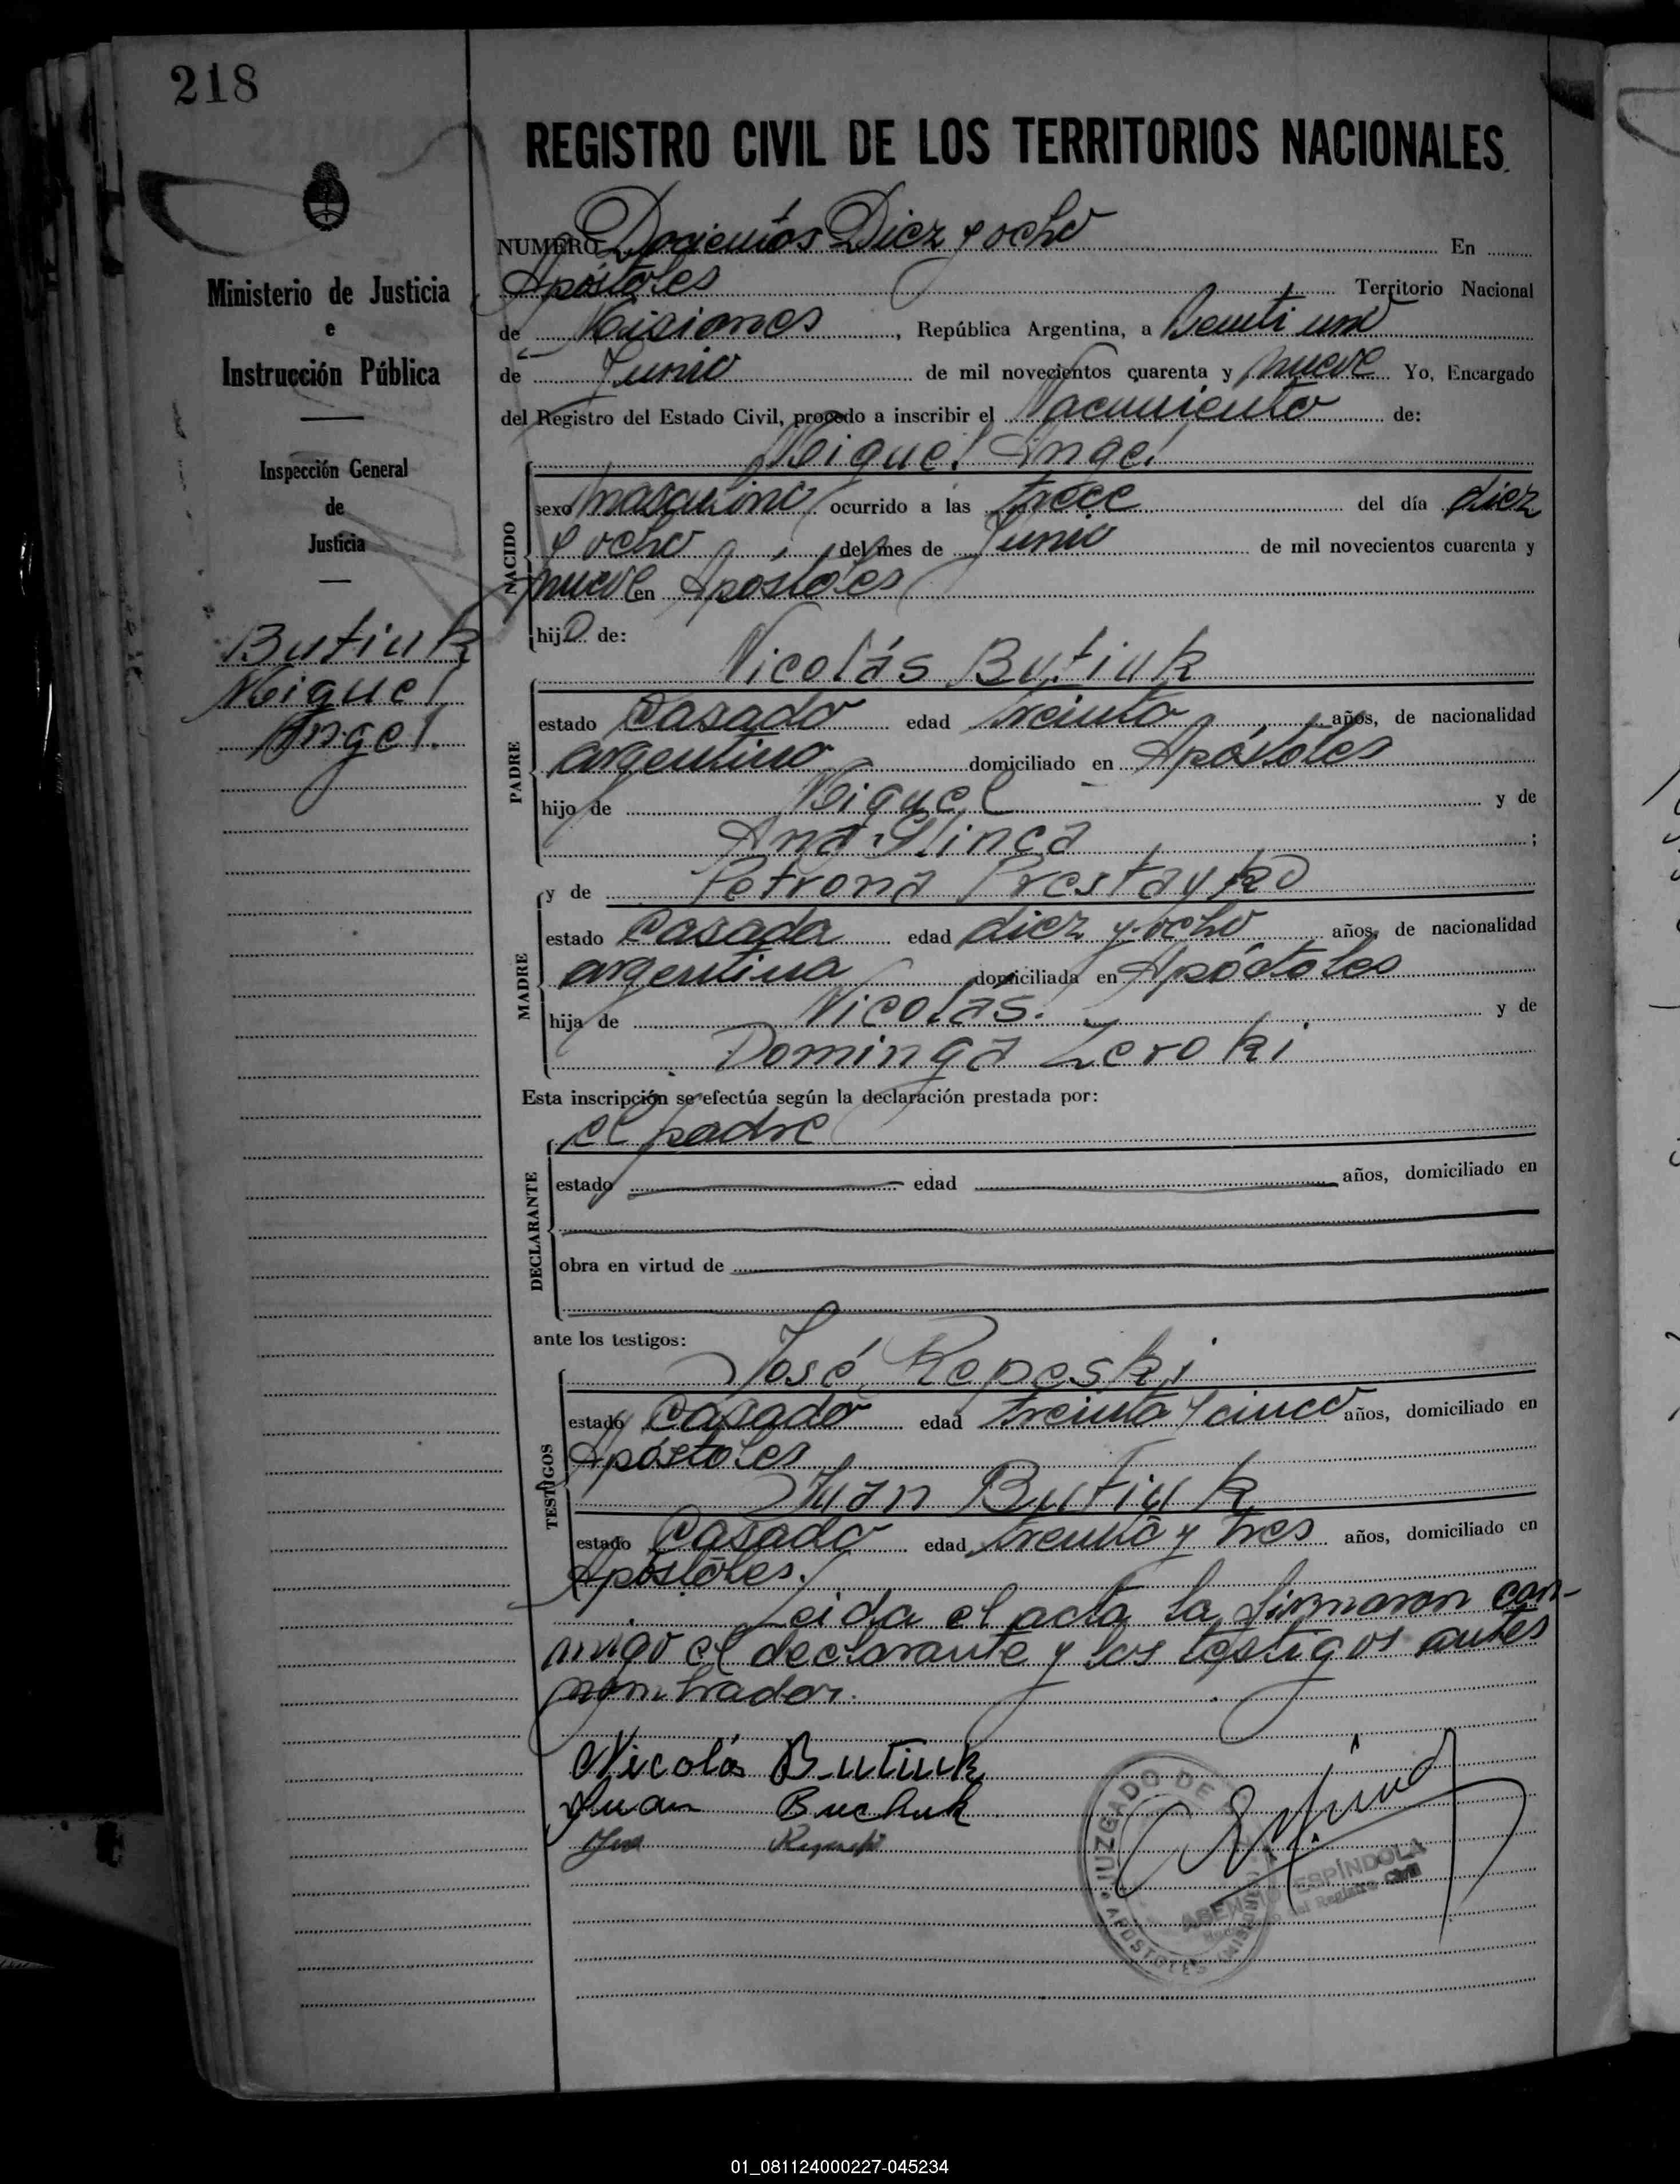 218
REGISTRO CIVIL DE LOS TERRITORIOS NACIONALES.
Ministerio de Justicia
e
Instrucción Pública
Inspección General
de
Justicia
Butiuk
Miguel
Angel.
NUMERO Docientos Diez y ocho En
Apóstoles Territorio Nacional
de Misiones, República Argentina, a Veinti uno
de Junio de mil novecientos cuarenta y nueve Yo, Encargado
del Registro del Estado Civil, procedo a inscribir el Nacimiento de:
Miguel Angel
NACIDO
sexo masculino ocurrido a las trece del día diez
y ocho del mes de Junio de mil novecientos cuarenta y
nueve en Apóstoles
hijo de:
Nicolás Butiuk
PADRE
estado Casado edad treinta años, de nacionalidad
argentino domiciliado en Apóstoles
hijo de Miguel y de
Ana Glinca ;
y de Petrona Prestayko
MADRE
estado Casada edad diez y ocho años, de nacionalidad
argentina domiciliada en Apóstoles
hija de Nicolás. y de
Dominga Zeroki
Esta inscripción se efectúa según la declaración prestada por:
el padre
DECLARANTE
estado edad años, domiciliado en
obra en virtud de
ante los testigos:
José Repeski
TESTIGOS
estado Casado edad treinta y cinco años, domiciliado en
Apóstoles
Juan Butiuk
estado Casado edad treinta y tres años, domiciliado en
Apóstoles.
Leida el acta la firmaron con-
migo el declarante y los testigos antes
nombrados.
Nicolás Butiuk
Juan Buchuk
JUZGADO DE
APOSTOLES (MISIONES)
ESPÍNDOLA
del Registro Civil
01_081124000227-045234